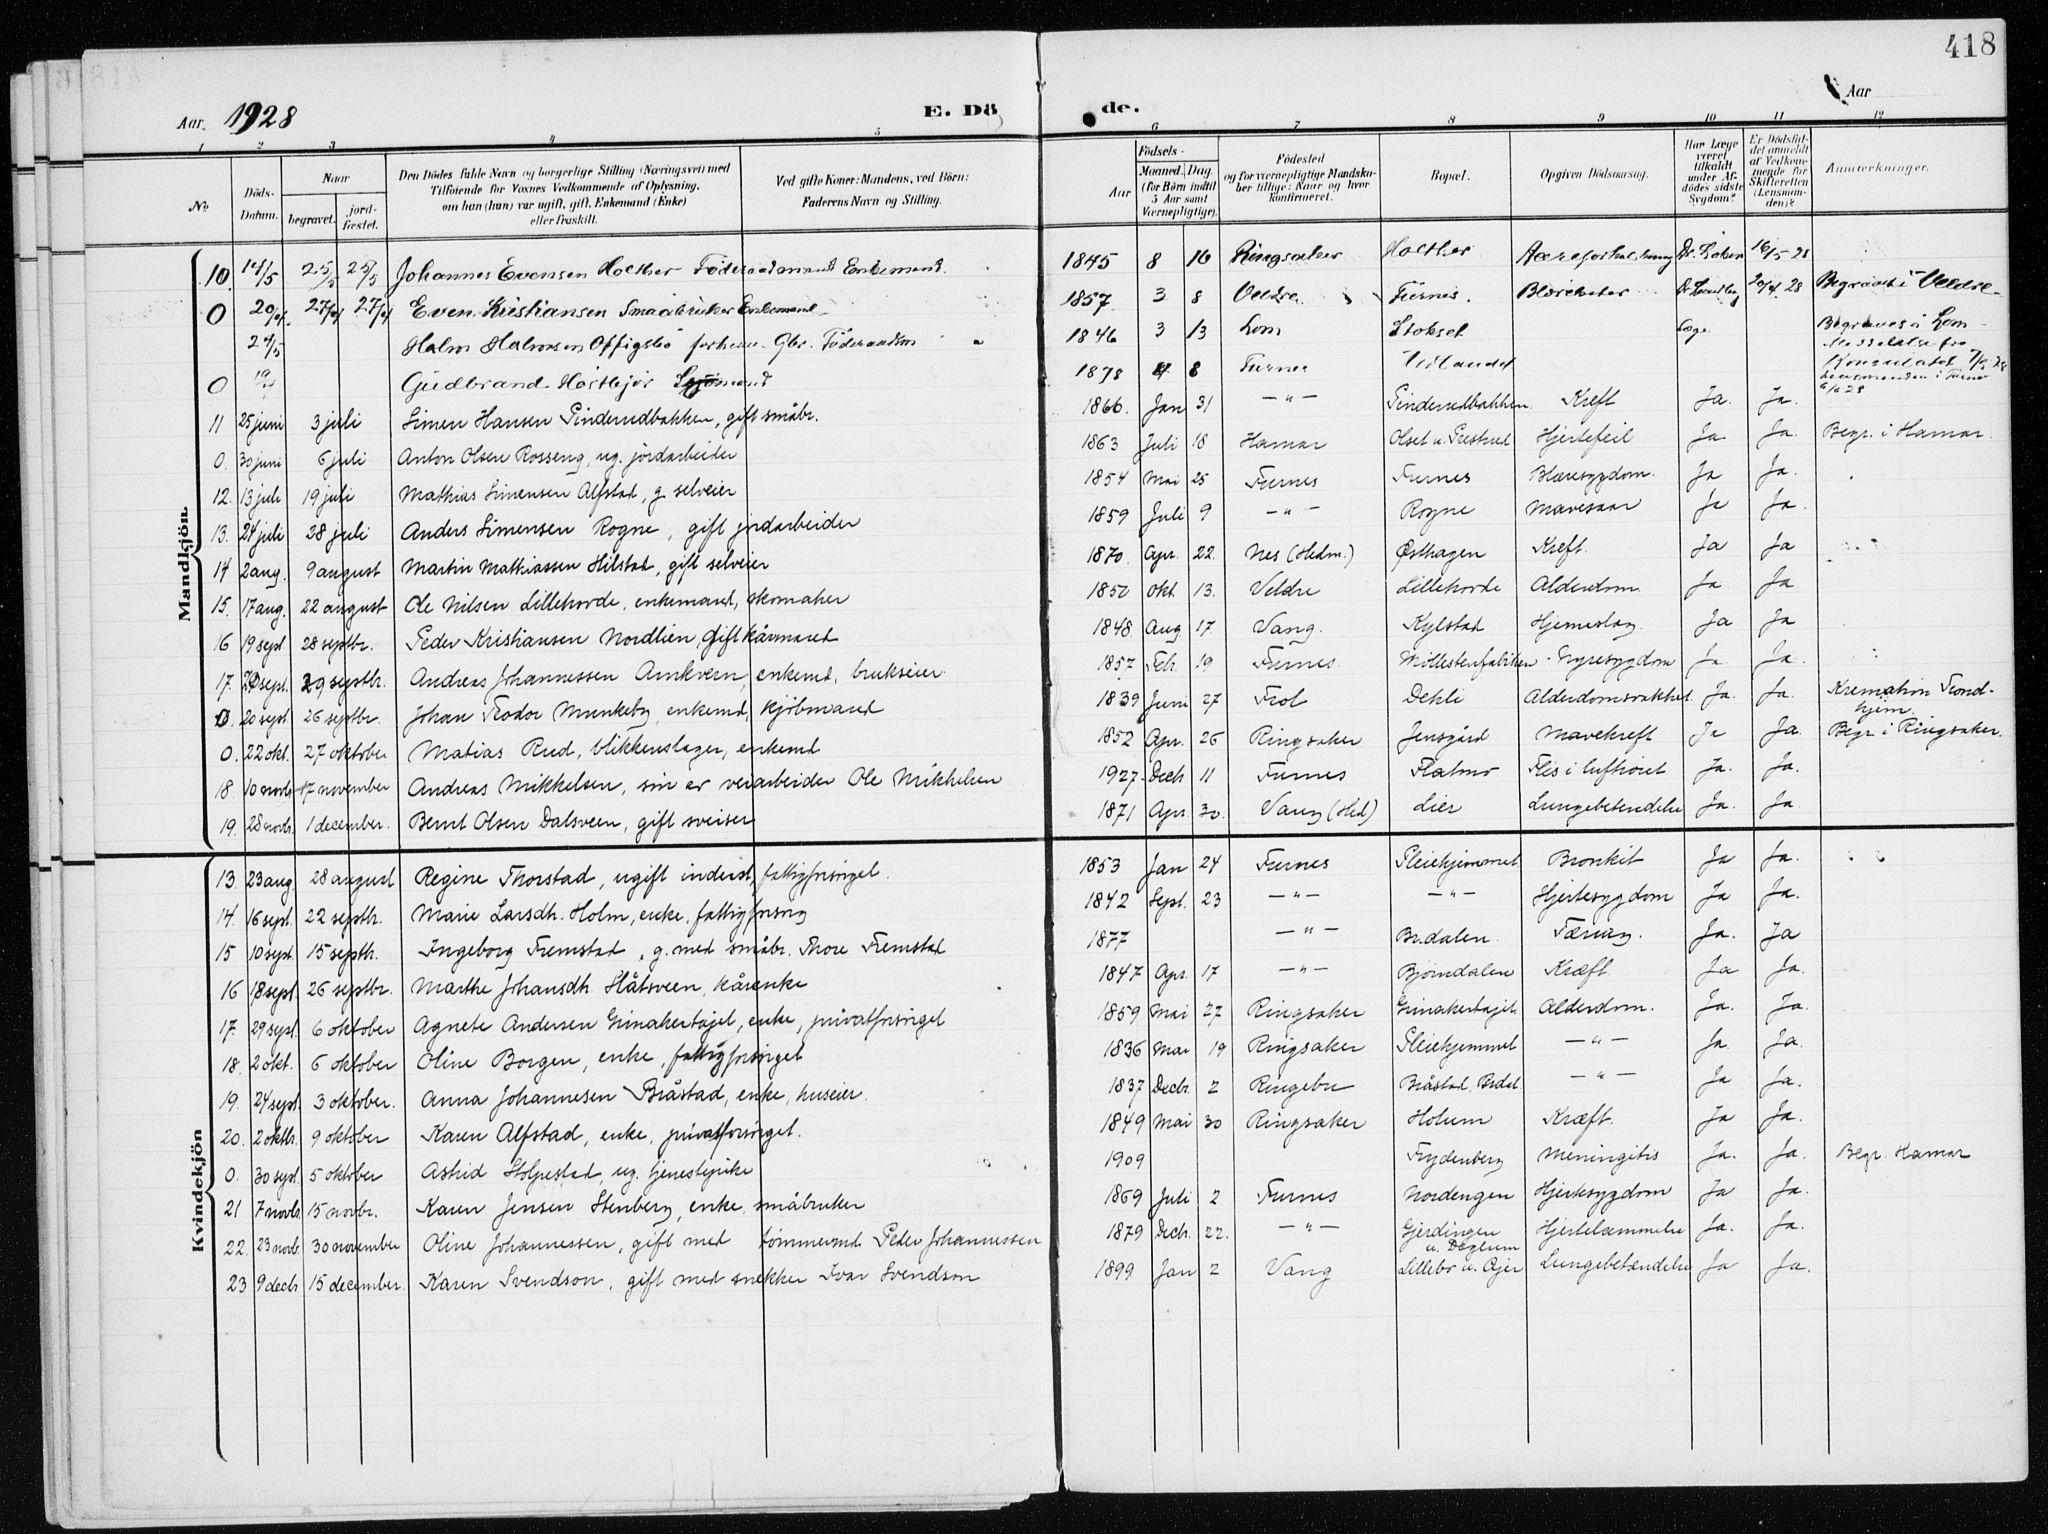 418
Aar 1928
E. Dö de.
Aar
1 2 3 4 5 6 7 8 9 10 11 12
No
Döds-Datum.
Naar
begravet.
jord-fæstet.
Den Dödes fulde Navn og borgerlige Stilling (Næringsvei) med
Tilföiende for Voxnes Vedkommende af Oplysning,
om han (hun) var ugift, gift, Enkemand (Enke)
eller fraskilt.
Ved gifte Koner: Mandens, ved Börn:
Faderens Navn og Stilling.
Födsels-
Aar
Maaned. Dag.
(for Börn indtil
5 Aar samt
Værnepligtige).
Födested
og for værnepligtige Mandska-
ber tillige: Naar og hvor
konfirmeret.
Bopæl.
Opgiven Dödsaarsag.
Har Læge
været
tilkaldt
under Af-
dödes sidste
Sygdom?
Er Dödsfal-
det anmeldt
af Vedkom-
mende for
Skifteretten
(Lensman-
den)?
Anmærkninger.
Mandkjön.
10. 14/5 25/5 25/5 Johannes Evensen Holther Föderaadmand Enkemand. 1845 8 16 Ringsaker Holther 16/5 28
0 20/4 27/4 27/4 Even Kristiansen Smaabruker Enkemand 1857 3 8 Veldre Furnes. 28 Begravet i Veldre
24/5 Halvor Halvorsen 1846 3 13 Lom Stokset Læge Begraves i Lom
0 Gudbrand 1878 4 8 Furnes Utlandet
11 25 juni 3 juli Simen Hansen Pinderudbakken, gift småbr. 1866. Jan 31 —"— Pinderudbakken. Kreft Ja. Ja.
0. 30 juni 6 juli Anton Olsen Rosseng, ug. jordarbeider 1863 Juli 18 Hamar Hjertefeil Ja Ja. Begr. i Hamar.
12. 13 juli 19 juli Mathias Simensen Alfstad, g. selveier 1854 Mai 25 Furnes Furnes Blæresygdom. Ja Ja.
13. 24 juli 28 juli Anders Simensen Rogne, gift jordarbeider 1859 Juli 9 —"— Rogne Mavesaar Ja Ja.
14 2 aug. 9 august Martin Mathiassen Hilstad, gift selveier 1870. Apr. 22. Nes (Hedm.) Østhagen Kreft. Ja Ja
15. 17 aug. 22 august Ole Nilsen Lillehorde, enkemand, skomaker 1850 Okt. 13. Veldre Lillehorde Alderdom. Ja Ja
16 19 sept 28 septbr. Peder Kristiansen Nordlien, gift kårmand 1848 Aug 17 Vang. Kylstad Hjerneslag Ja Ja
17. sept. 29 septbr. Andreas Johannessen Arnkvern, enkemd, brukseier. 1857 Feb. 19 Furnes. Møllestenfabriken Nyresygdom Ja. Ja.
0. 20 sept 26 septbr. Johan Teodor Munkeby, enkemd, kjøbmand 1839 Juni 27 Frol Dehli Alderdomssvakhet Ja. Ja. Kremation Trond-
hjem.
0. 22 okt. 27 oktober Matias Rud, blikkenslager, enkemd 1852 Apr. 26 Ringsaker Jensgård Mavekreft Ja Ja. Begr. i Ringsaker.
18. 10 novb 17 november Andreas Mikkelsen, søn av veiarbeider Ole Mikkelsen 1927. Decb 11 Furnes Flatmo Flis i luftrøret Ja. Ja.
19. 28 novb. 1 december. Bernt Olsen Dalsveen, gift sveiser 1871 Apr. 30. Vang (Hed) Lier Lungebetendelse Ja. Ja.
Kvindekjön
13. 23 aug. 28 august Regine Thorstad, ugift inderst, fattigforsørget. 1853 Jan 24 Furnes Pleiehjemmet Bronkit Ja Ja.
14. 16 sept. 22 septbr. Marie Larsdtr. Holm, enke, fattigforsørg 1842 Sept. 23 —"— —"— Hjertesygdom Ja Ja.
15 10 sept. 15 septbr. Ingeborg Fremstad, g. med småbr. Thore Fremstad 1877 —"— Brdalen. Tæring. Ja. Ja
16 18 sept. 26 septbr. Marthe Johansdtr. Slåtsveen, kårenke 1847 Apr. 17 —"— Bjørndalen Kræft. Ja Ja.
17. 29 sept. 6 oktober Agnete Andersen Grinakertajet, enke, privatforsørget 1859 Mai 27 Ringsaker Grinakertajet Alderdom. Ja. Ja.
18. 2 okt. 6 oktober Oline Borgen, enke, fattigforsørget 1836 Mai 19 Ringsaker Pleiehjemmet —"— Ja. Ja.
19. 24 sept. 3 oktober. Anna Johannesen Bråstad, enke, huseier. 1837 Decb. 2 Ringebu Bråstad Brdal —"— Ja Ja.
20. 2 oktb. 9 oktober Karen Alfstad, enke, privatforsørget. 1849 Mai 30 Ringsaker Holum Kræft. Ja Ja.
0. 30 sept. 5 oktober Astrid Stolpestad, ug. tjenestepike 1909 Frydenberg Meningitis Ja. Ja. Begr. Hamar
21 7 novb. 15 novbr. Karen Jensen Stenberg, enke, småbruker 1869 Juli 2 Furnes Nordengen Hjertesygdom Ja Ja.
22. 23 novb. 30 november Oline Johannessen, gift med tømmermd. Peder Johannessen 1879 Decb. 22. —"— Gjerdingen
u. Døglum Hjertelammelse Ja. Ja.
23 9 decb 15 december. Karen Svendson, gift med snekker Ivar Svendson 1899 Jan 2 Vang Lillebo u. Ajer Lungebetændelse Ja Ja.